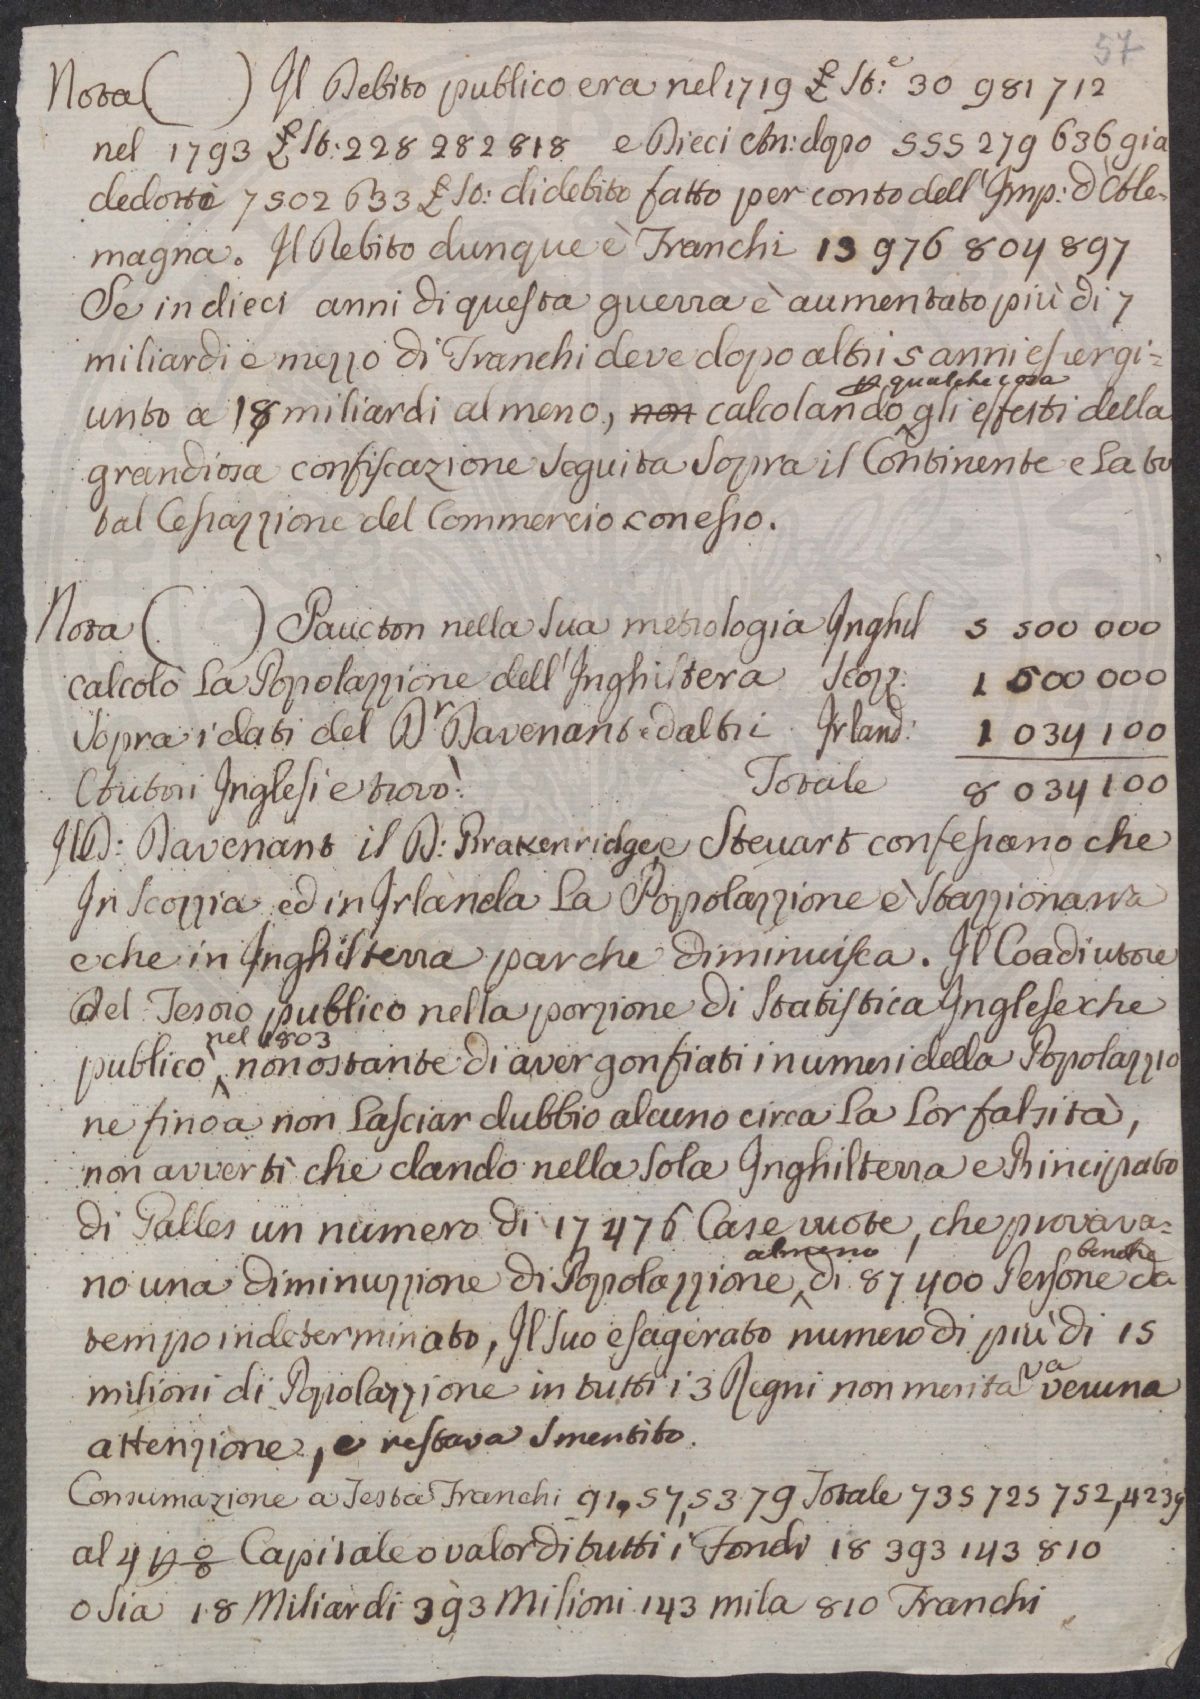 57
Nota ( ) Il Debito publico era nel 1719 £ St:e 30 981 712
nel 1793 £ St: 228 282 818 e Dieci An: dopo 555 279 636 gia
dedotti 7 502 633 £ St: di debito fatto per conto dell' Imp: d'Ale-
magna. Il Debito dunque è Franchi 13 976 804 897
Se in dieci anni di questa guerra è aumentato più di 7
miliardi e mezzo di Franchi deve dopo altri 5 anni esser gi=
qualche cosa
unto a 18 miliardi almeno, non calcolando gli effetti della
grandiosa confiscazione seguita sopra il Continente e la to
tal Cessazzione del Commercio con esso.
Nota ( ) Paucton nella sua metrologia Inghil 5 500 000
calcolò la Popolazzione dell'Inghiltera Scozz: 1 500 000
sopra i dati del Dr Davenant e d'altri Irland: 1 034 100
Autori Inglesi e trovò: Totale 8 034 100
Il D: Davenant il D: Brakenridge, e Steuart confessano che
In Scozzia ed in Irlanda la Popolazzione è stazzionaria
e che in Inghilterra par che diminuisca. Il Coadiutore
del Tesoro publico nella porzione di Statistica Inglese che
nel 1803
publicò nonostante di aver gonfiati i numeri della Popolazzio
ne fino a non lasciar dubbio alcuno circa la lor falsità,
non avvertì che dando nella sola Inghilterra e Principato
di Galles un numero di 17 476 Case vuote, che provava=
almeno benche
no una diminuzzione di Popolazzione di 87 400 Persone da
tempo indeterminato, Il suo esagerato numero di più di 15
milioni di Popolazzione in tutti i 3 Regni non meritava veruna
attenzione, e restava smentito.
Consumazione a Testa Franchi 91,57,53 79 Totale 735 725 752,4239
al 4 p % Capitale o valor di tutti i Fondi 18 393 143 810
o sia 18 Miliardi 393 Milioni 143 mila 810 Franchi